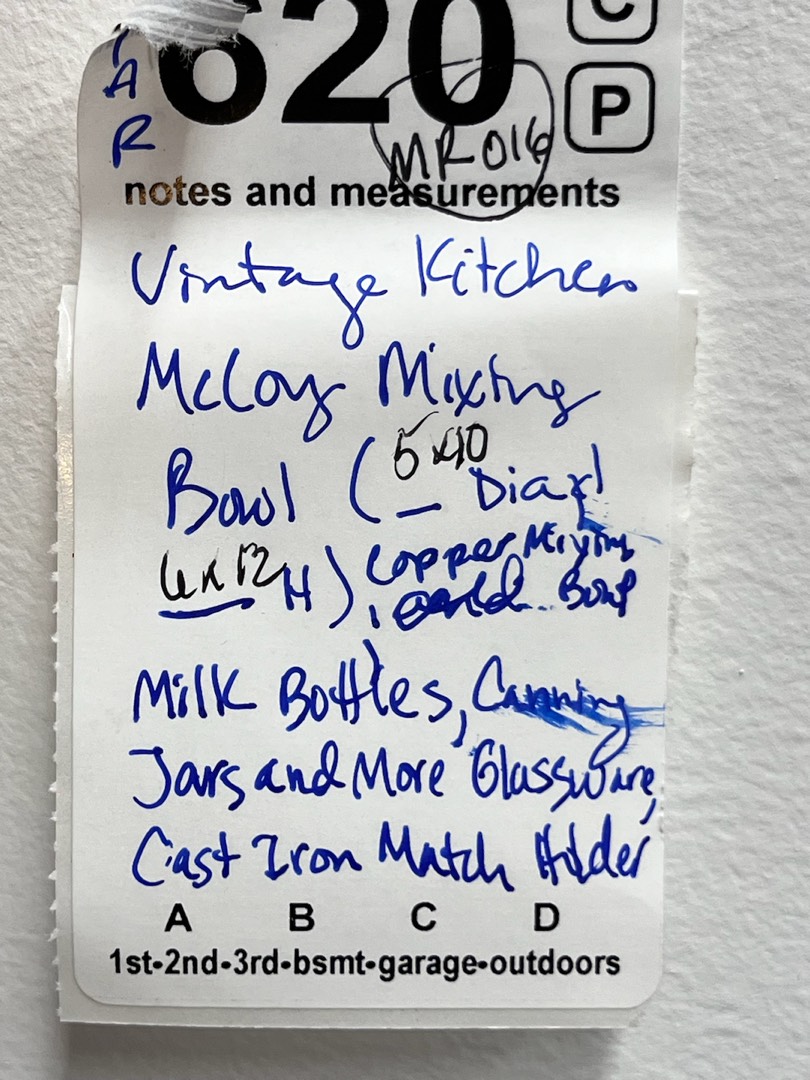 620
C
P
A
R
MR016
notes and measurements
Vintage Kitchen
McCoy Mixing
Bowl ( 5x10 Diax
6x12 H), Copper Mixing
Bowl
Milk Bottles, Canning
Jars and More Glassware,
Cast Iron Match Holder
A B C D
1st-2nd-3rd-bsmt-garage-outdoors